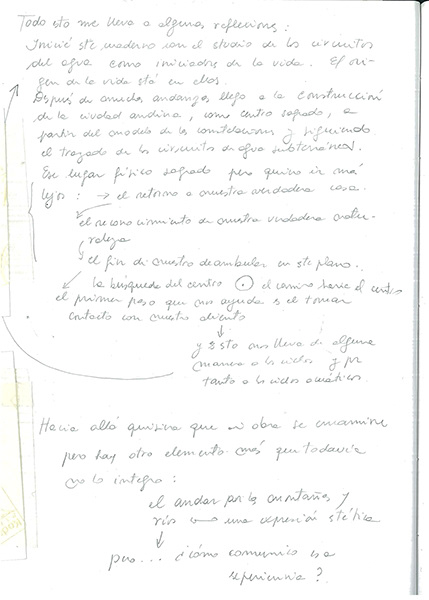 Todo esto me lleva a algunas reflexiones:
Inicié este cuaderno con el estudio de los circuitos
del agua como iniciadores de la vida. El ori-
gen de la vida está en ellos.
Después de muchas andanzas llego a la construcción
de la ciudad andina, como centro sagrado, a
partir del modelo de las constelaciones y siguiendo
el trazado de los circuitos de agua subterránea.
Ese lugar físico sagrado pero quiero ir más
lejos: → el retorno a nuestra verdadera casa.
el reconocimiento de nuestra verdadera natu-
raleza
el fin de nuestro deambular en este plano.
la búsqueda del centro ⊙ el camino hacia el centro
el primer paso que nos ayuda es el tomar
contacto con nuestro aliento
↓
y esto nos lleva de alguna
manera a los ciclos y por
tanto a los ciclos acuáticos.
Hacia allá quisiera que mi obra se encamine
pero hay otro elemento más que todavía
no lo integro:
el andar por las montañas y
ríos una expresión estética
↓
pero... ¿cómo comunico esa
experiencia?